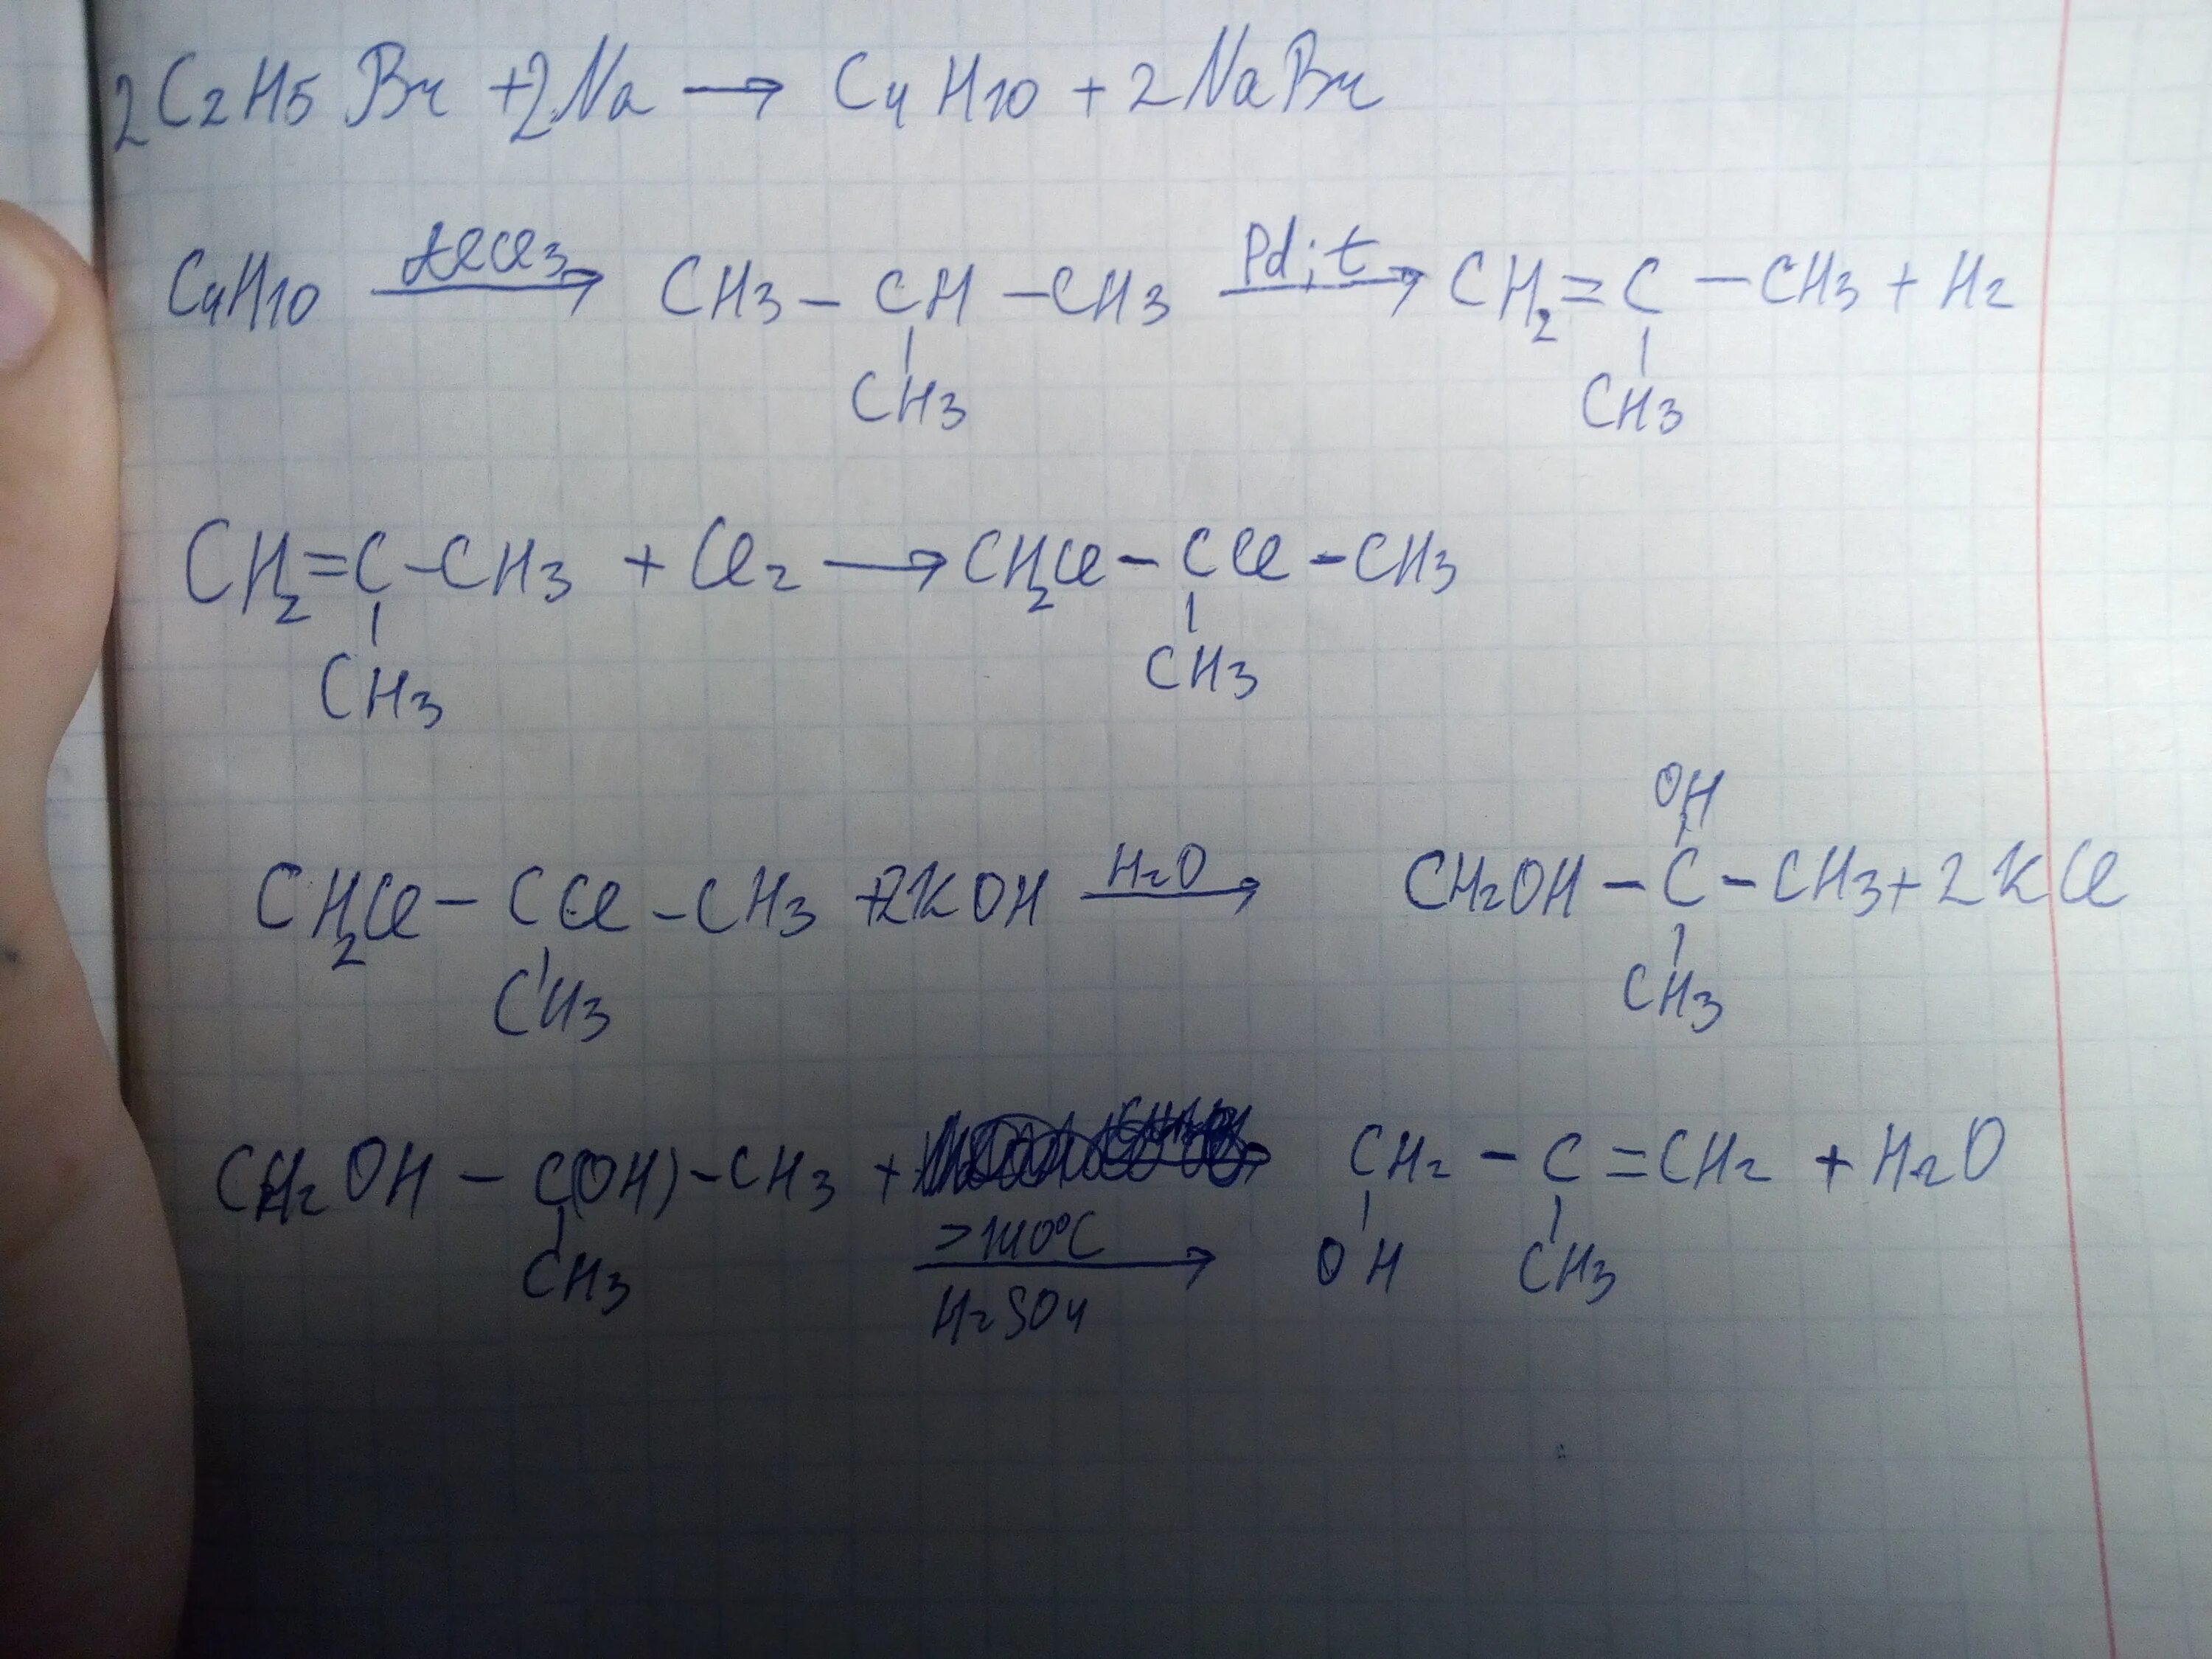 2C2H5Br + 2Na → C4H10 + 2NaBr
C4H10 AlCl3 → CH3 – CH – CH3 Pd; t → CH2 = C – CH3 + H2
CH3 CH3
CH2 = C – CH3 + Cl2 → CH2Cl – CCl – CH3
CH3 CH3
OH
CH2Cl – CCl – CH3 + 2KOH H2O → CH2OH – C – CH3 + 2KCl
CH3 CH3
CH2OH – C(OH) – CH3 + → CH2 – C = CH2 + H2O
CH3 >140°C OH CH3
H2SO4